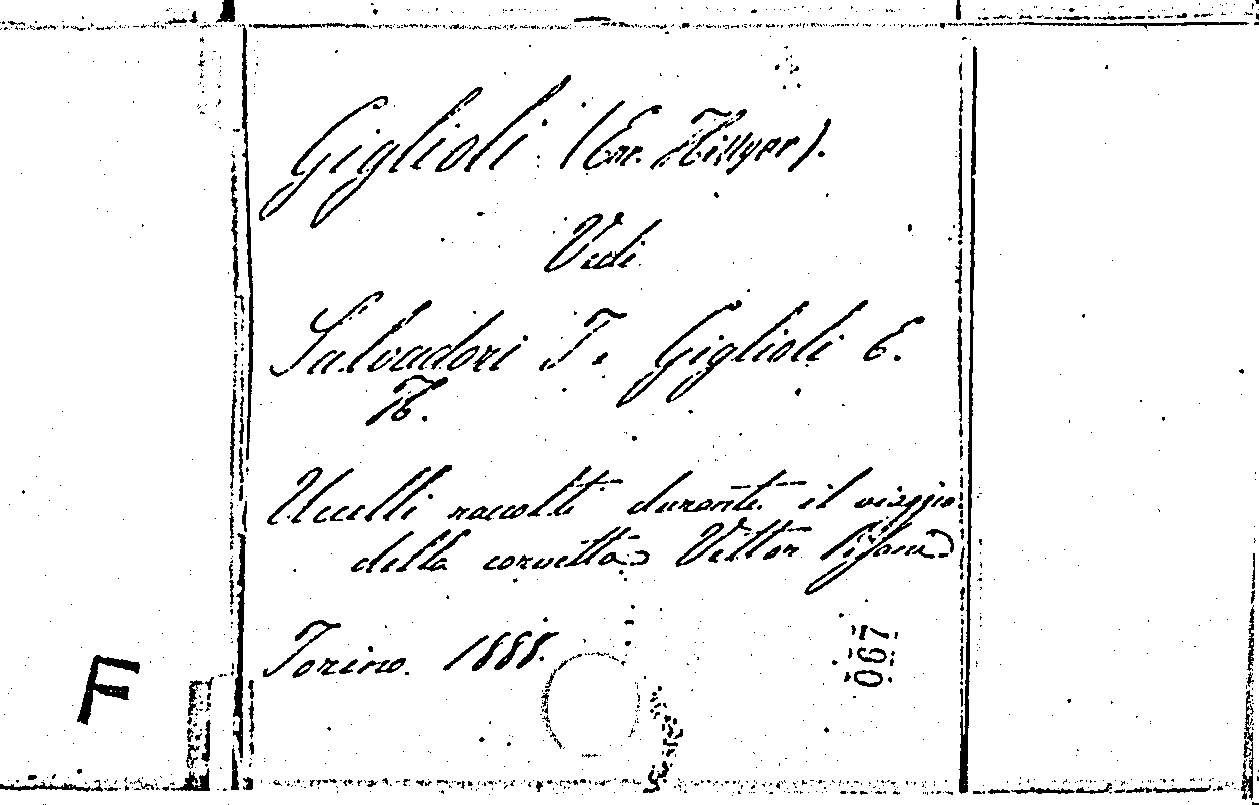 Giglioli (Enr. Hillyer).
Vedi
Salvadori T. Giglioli E.
H.
Uccelli raccolti durante il viaggio
della corvetta Vettor Pisani
Torino. 1888.
067
F